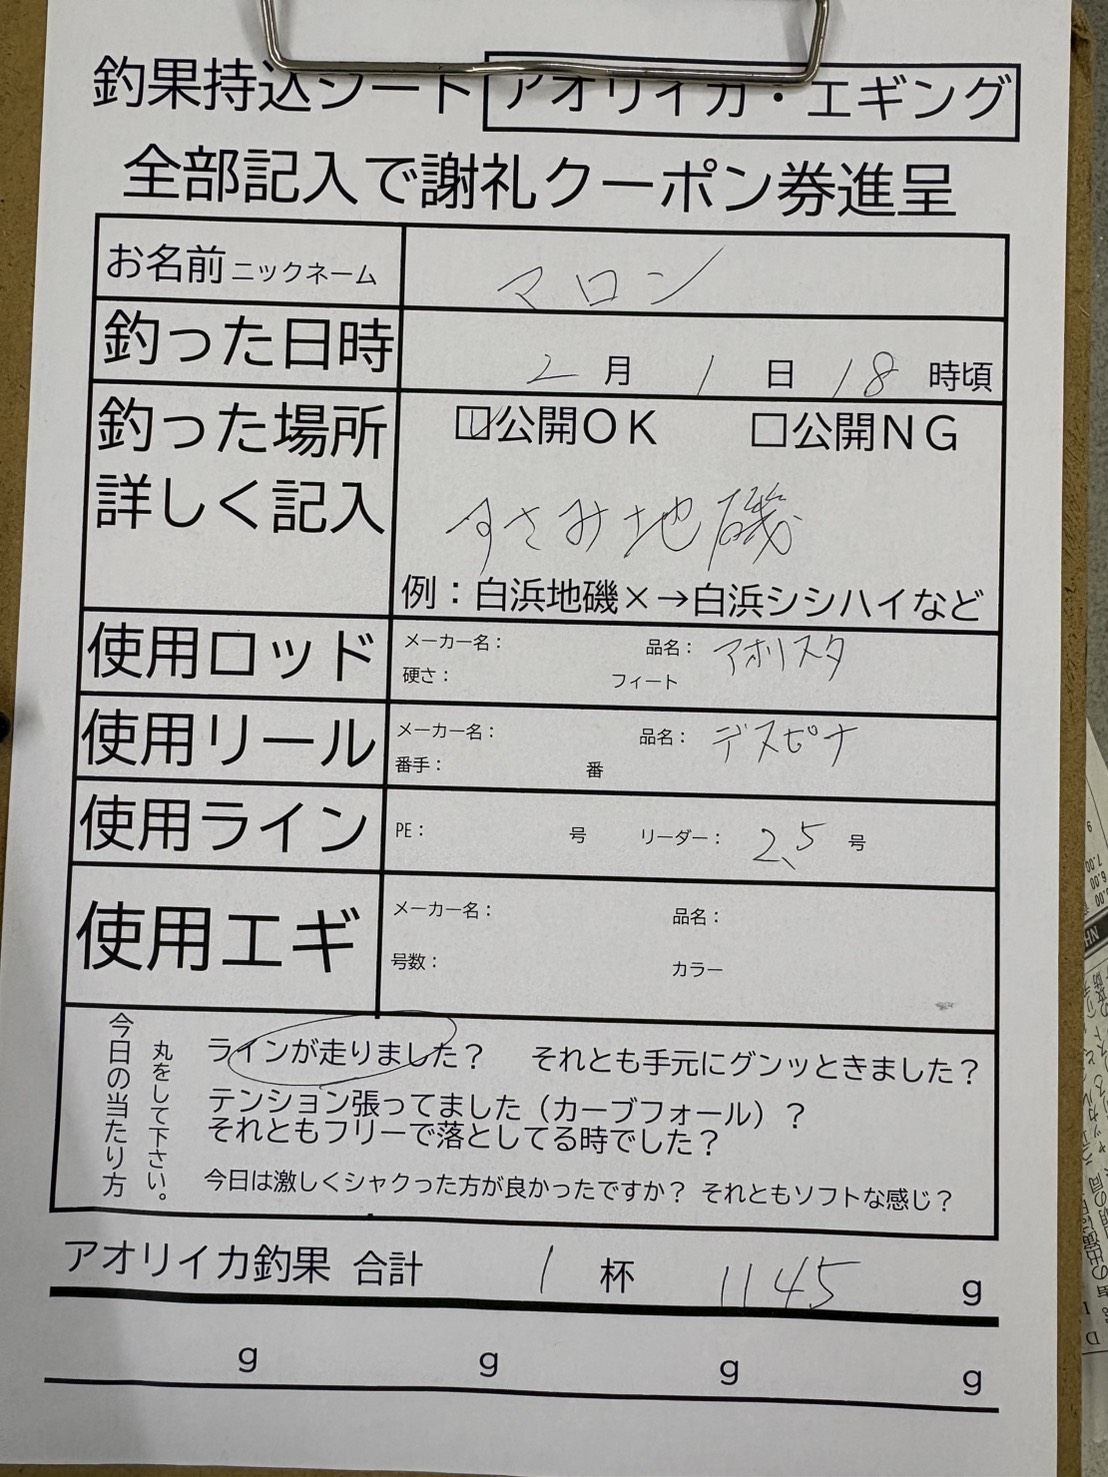 釣果持込シート アオリイカ・エギング
全部記入で謝礼クーポン券進呈
お名前 ニックネーム マロン
釣った日時 2 月 1 日 18 時頃
釣った場所 ☑公開OK □公開NG
詳しく記入 すさみ地磯
例：白浜地磯×→白浜シシハイなど
使用ロッド メーカー名： 品名： アオリスタ
硬さ： フィート
使用リール メーカー名： 品名： デスピナ
番手： 番
使用ライン PE： 号 リーダー： 2.5 号
使用エギ メーカー名： 品名：
号数： カラー
今日の当たり方
丸をして下さい。
ラインが走りました？ それとも手元にグンッときました？
テンション張ってました（カーブフォール）？
それともフリーで落としてる時でした？
今日は激しくシャクった方が良かったですか？ それともソフトな感じ？
アオリイカ釣果 合計 1 杯 1145 g
g g g g